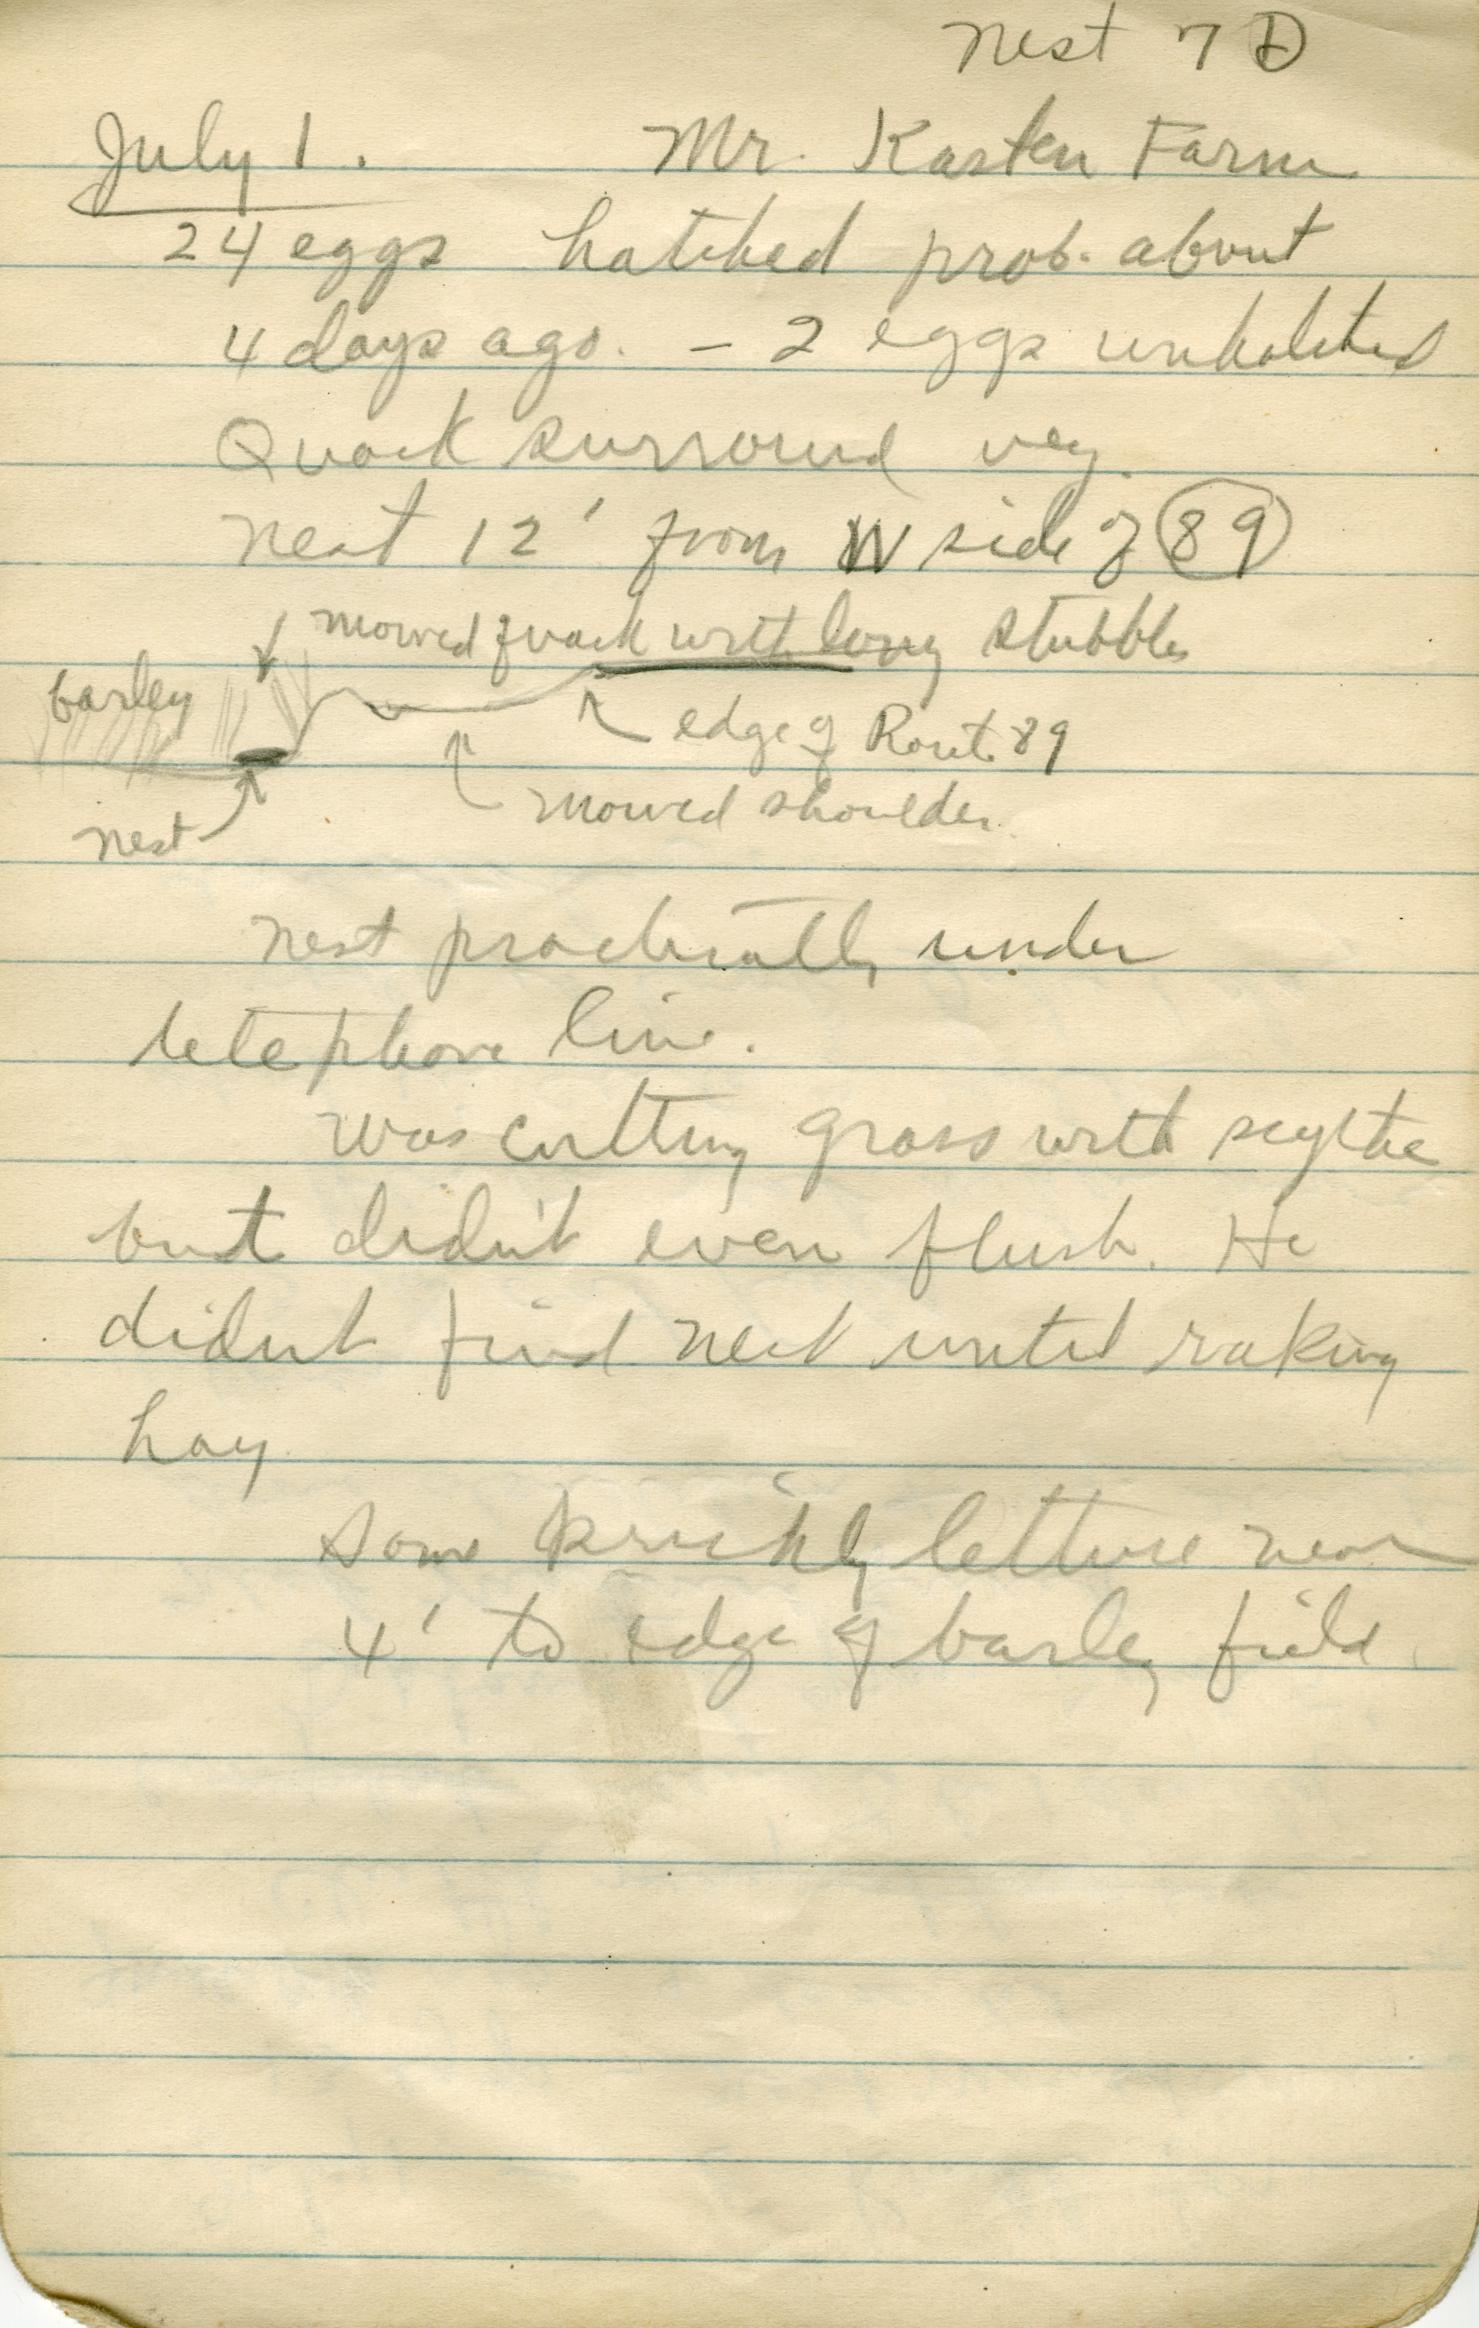 Nest 7 D
July 1. Mr. Karsten Farm
24 eggs hatched prob. about
4 days ago. - 2 eggs unhatched
Quack surround veg.
Nest 12' from W side of 89
mowed quack with long stubble
barley
edge of Route 89
mowed shoulder.
nest
nest practically under
telephone line.
Was cutting grass with scythe
but didn't even flush. He
didn't find nest until raking
hay
Some prickly lettuce near
4' to edge of barley field.